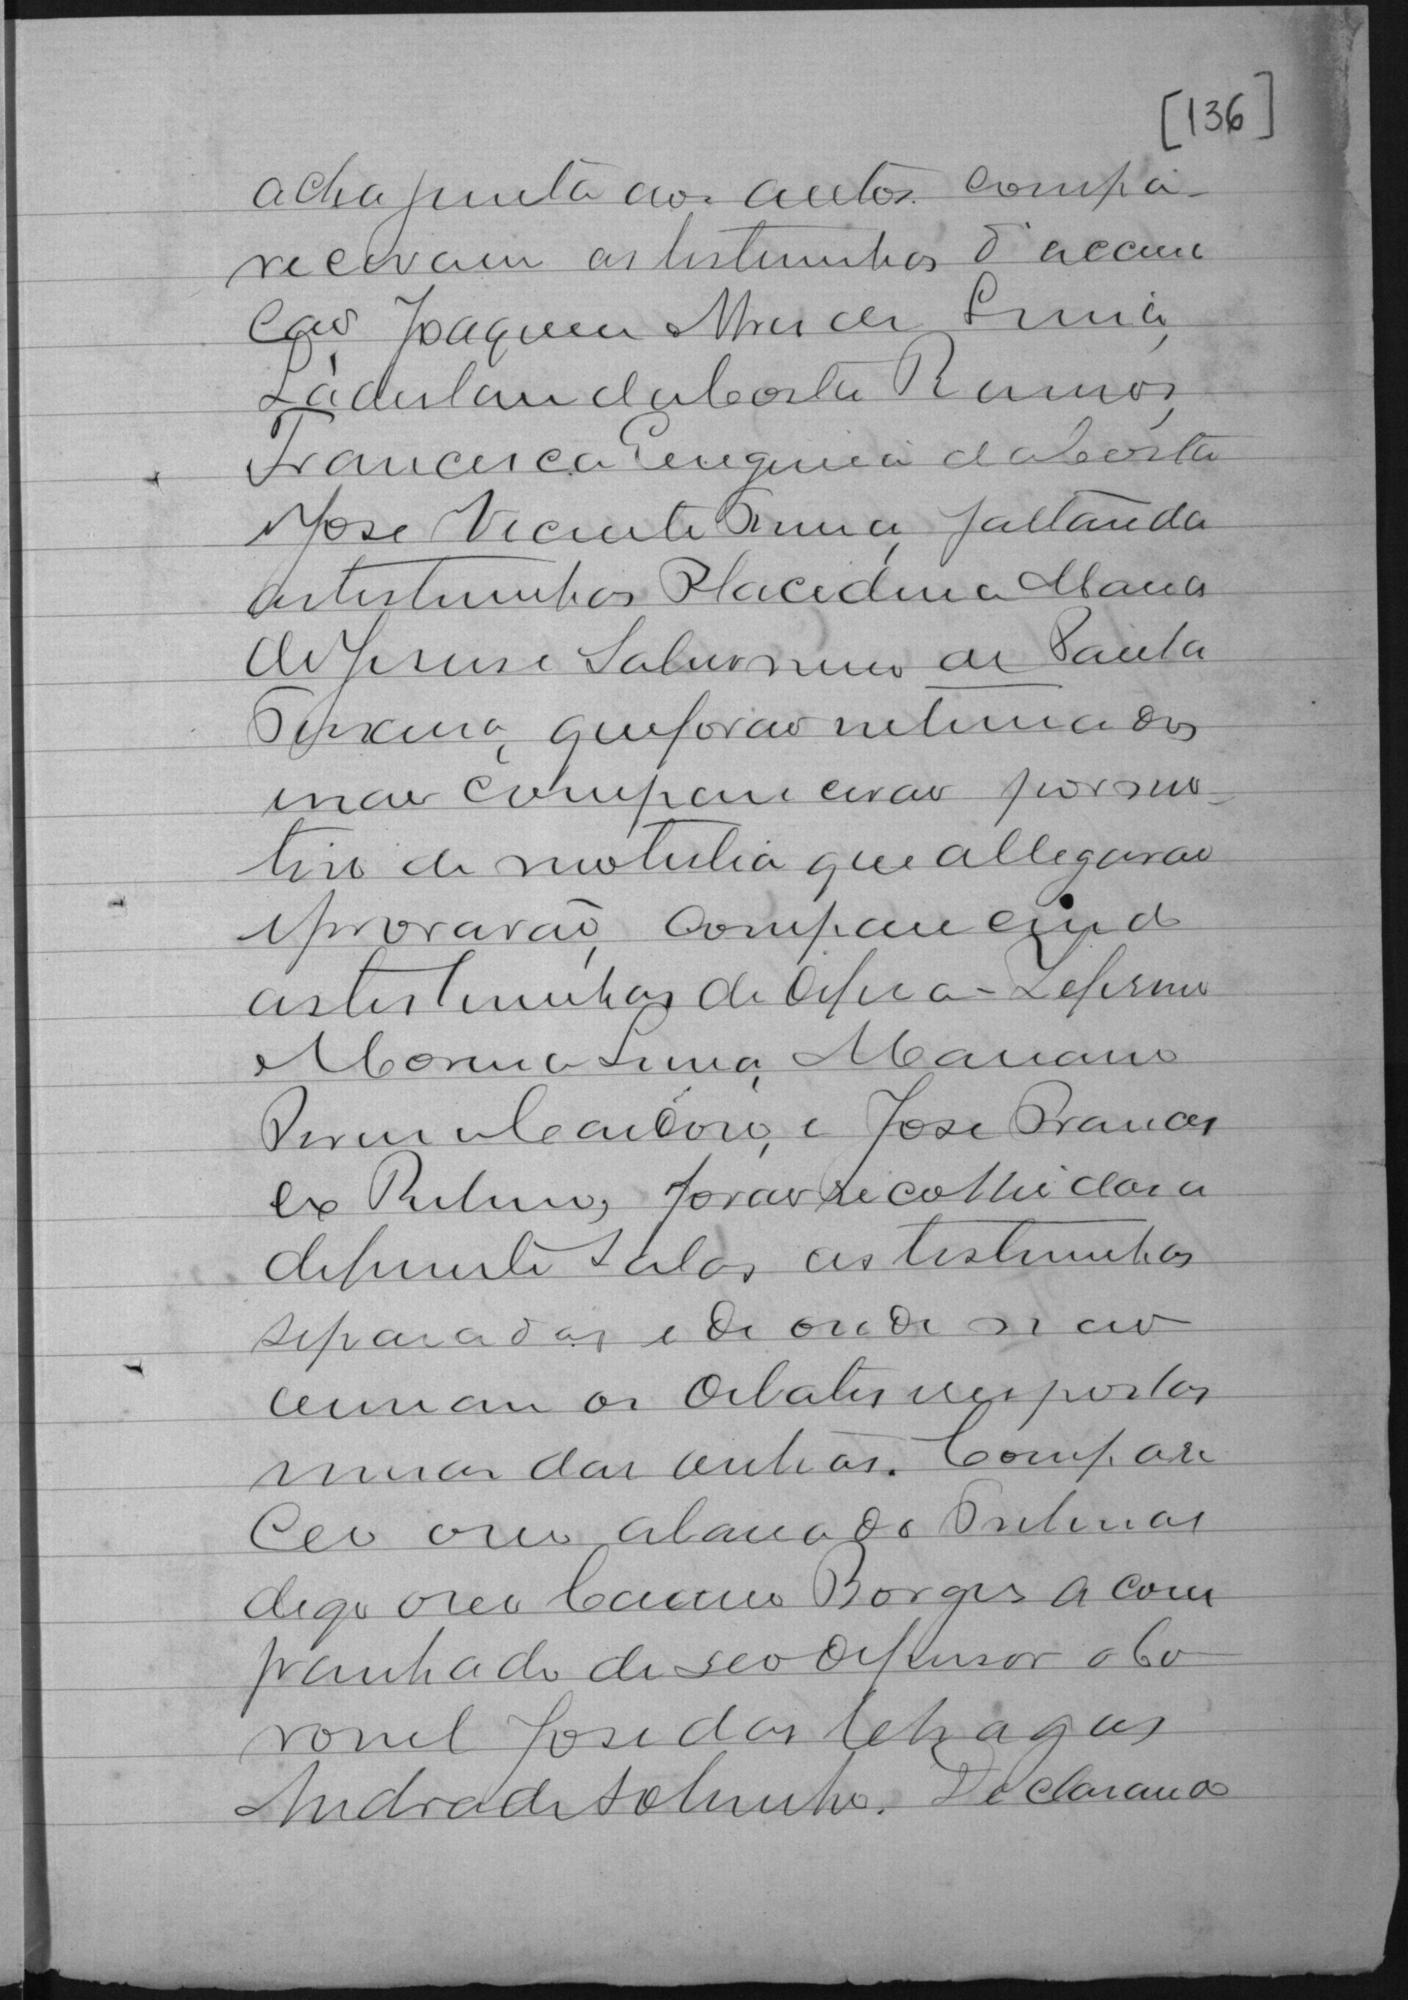 [136]
acha junta aos autos. compa-
receram as testimunhas d'accusa
ção, Joaquim Alves de Lima,
Ladislau da Costa Ramos,
Francisca Eugenia da Costa
Jose Vicente Lima, faltando
as testimunhas Placidina Maria
de Jesus e Saturnino de Paula
Teixeira, que forão intimados
e não comparecerão por mo-
tivo de molestia que allegarão
e provarão, comparecendo
as testimunhas de defesa - Zeferino
Lima, Mariano
Cardoso, e Jose Francis
co, forão recolhidas a
differente salas as testimunhas
separadas e de onde não
ouviam os debates e respostas
umas das outras. Compare
ceo o reo
digo o reo Borges acom
panhado de seo defensor o Co
ronel Jose das Chagas
Andrade Sobrinho. Declarando